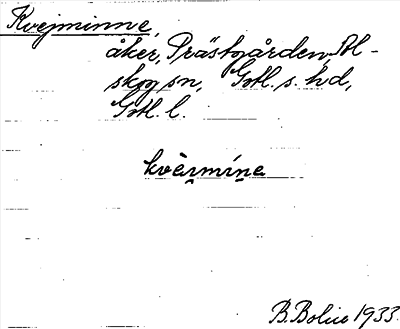 Kvejminne,
åker, Prästgården, Al-
skog sn, Gotl. s. hd,
Gotl. l.
kvèrmíne
B. Bolin 1933.